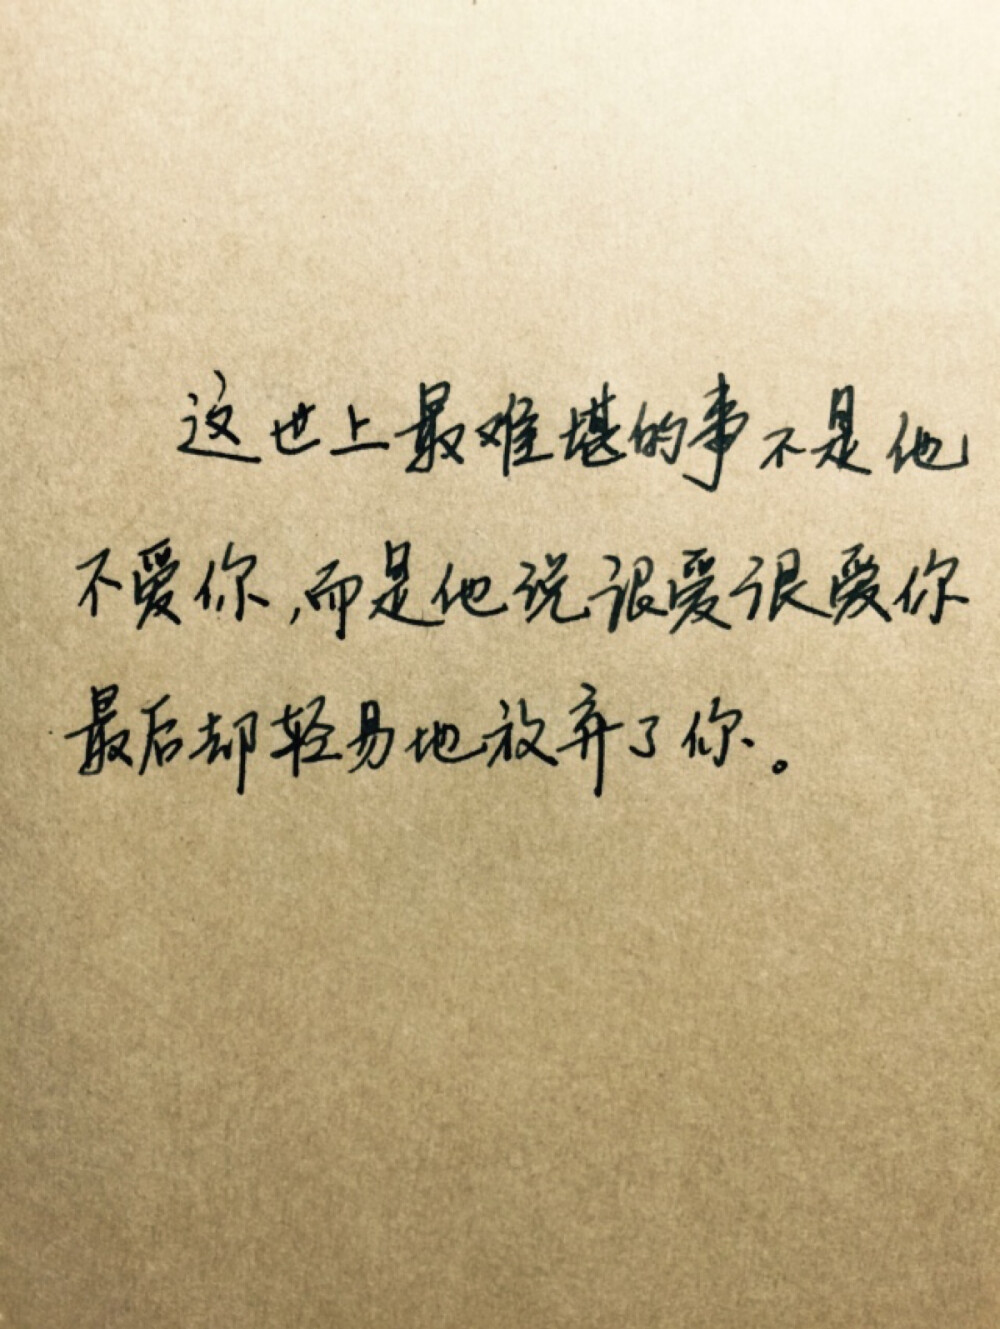 这世上最难堪的事不是他
不爱你,而是他说很爱很爱你
最后却轻易地放弃了你。